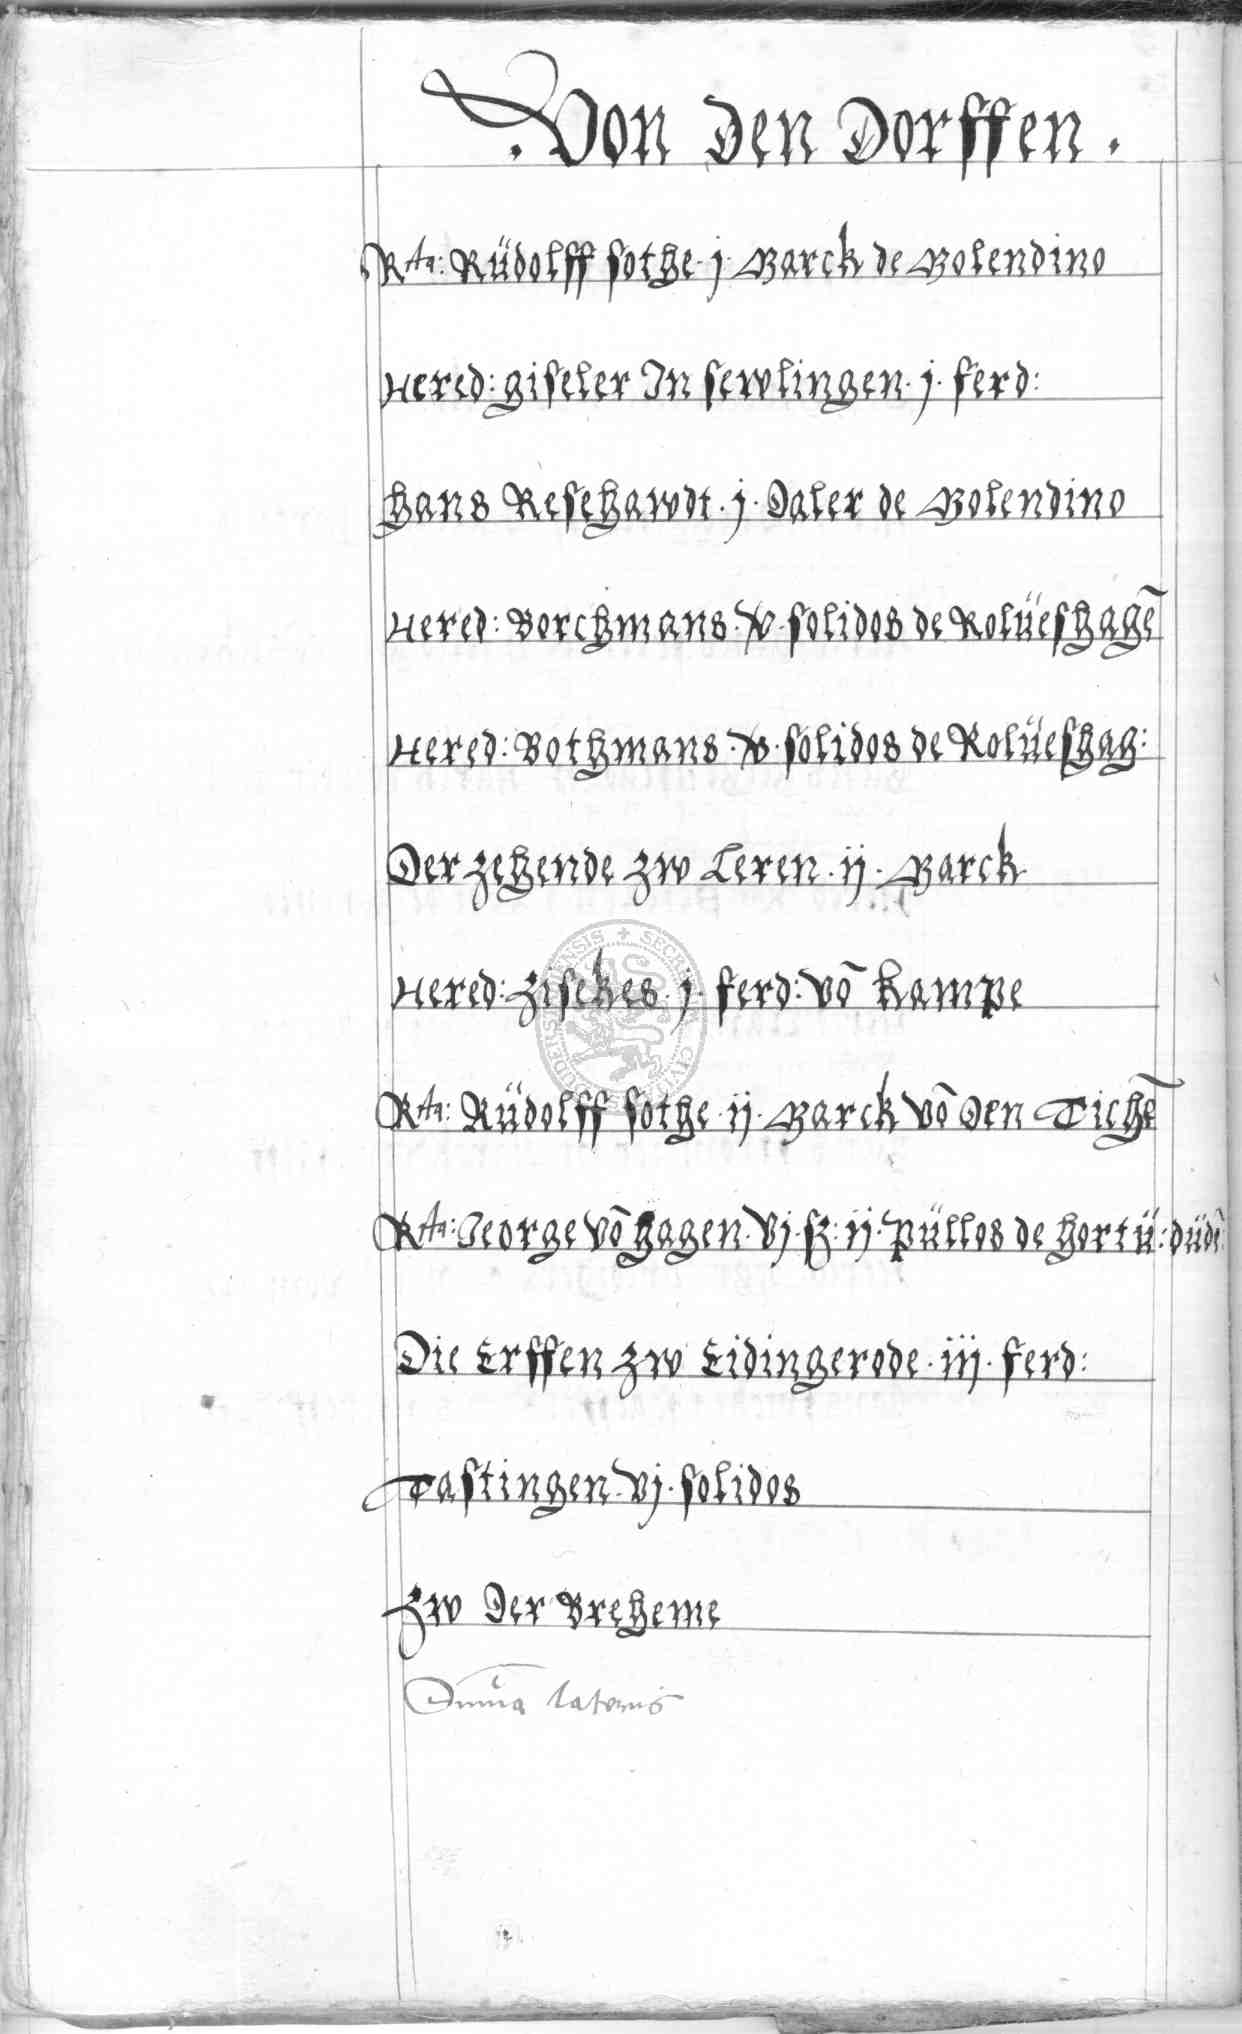 . Von den Dorffen .
Rta: Rüdolff sothe · j · Marck de Molendino
Hered: giseler In sewlingen · j · ferd:
hans Resehawdt · j · Daler de Molendino
Hered: Borchmans · v · solidos de Rolüeshagē
Hered: Bothmans · v · solidos de Rolüeshag:
Der zehende zw Leren · ij · Marck
Hered: Zisekes · j · ferd: vō kampe
Rta: Rüdolff sothe · ij · Marck vō den Tichē
Rta: Jeorge vō hagen · vj · ß: ij · püllos de hortü: düdē:
Die Erffen zw Eidingerode · iij · ferd:
Tastingen · vj · solidos
Zw der Breheme
Sum̄a lateris